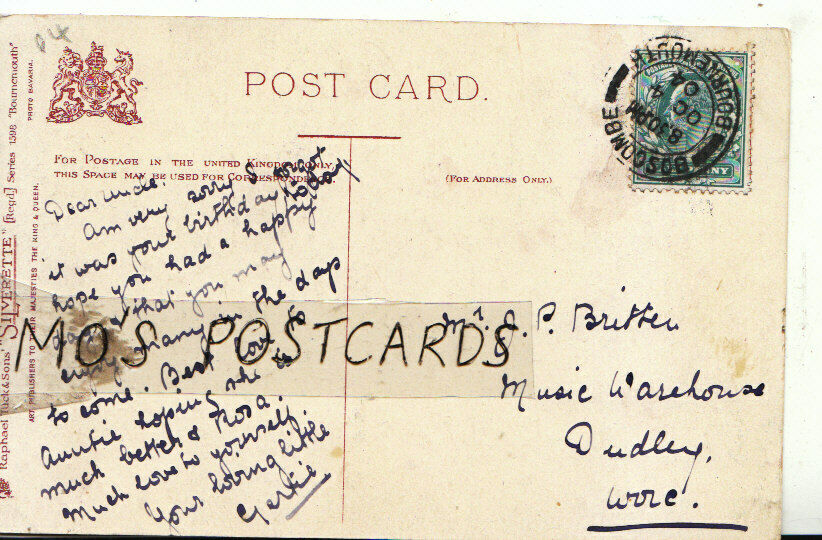 64
POST CARD.
FOR POSTAGE IN THE UNITED KINGDOM ONLY,
THIS SPACE MAY BE USED FOR CORRESPONDENCE.
(FOR ADDRESS ONLY.)
Raphael Tuck & Sons' "SILVERETTE" [Regd.] Series 1598 "Bournemouth"
PHOTO BAVARIA.
ART PUBLISHERS TO THEIR MAJESTIES THE KING & QUEEN.
BOSCOMBE
BOURNEMOUTH
8.30PM
OC 4
04
Dear Uncle.
Am very sorry I forgot
it was your birthday today
hope you had a happy
day & that you may
enjoy many in the days
to come. Best love to
Auntie hoping she is
much better & Rosa.
Much love to yourself
Your loving little
Gertie
Mr. J. P. Britten
Music Warehouse
Dudley,
Worc.
MOS POSTCARDS